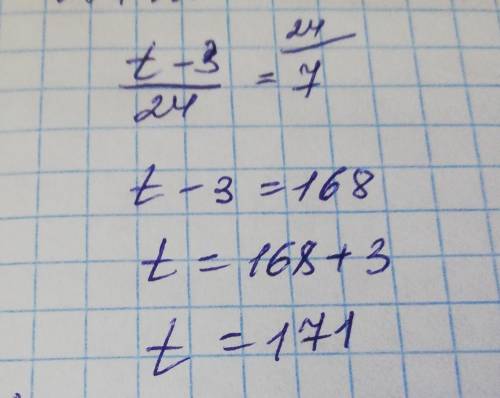 t - 3 / 24 = 24/7
t - 3 = 168
t = 168 + 3
t = 171